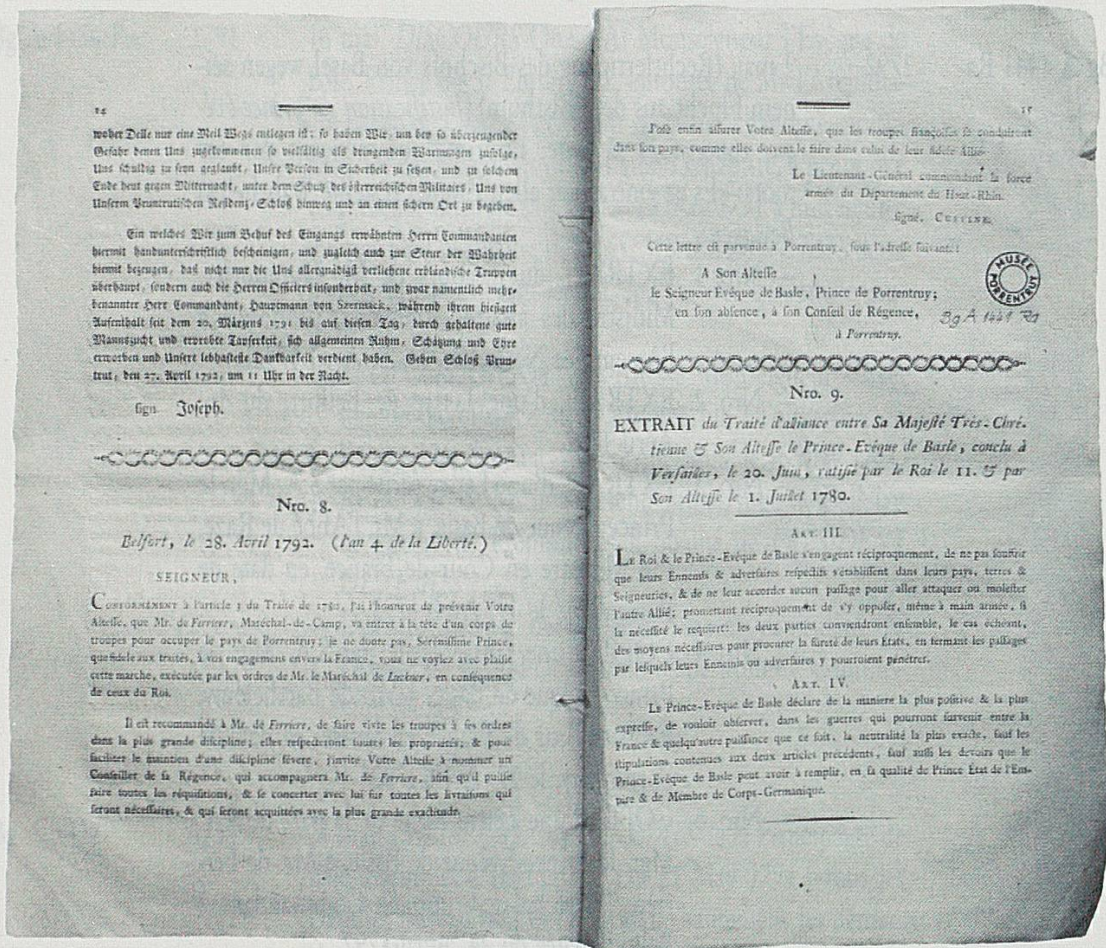 14
woher Delle nur eine Meil Wegs entlegen ist; so haben Wir, um der so überzeugender
Gefahr denen Uns zugekommenen so vielfältig als dringenden Warnungen zufolge,
Uns schuldig zu seyn geglaubt, Unsre Person in Sicherheit zu setzen, und zu solchem
Ende heut gegen Mitternacht, unter dem Schutz des österreichischen Militairs, Uns von
Unserm Pruntrutischen Residenz-Schloß hinweg und an einen sichern Ort zu begeben.
Ein welches Wir zum Behuf des Eingangs erwähnten Herrn Commandanten
hiermit handunterschriftlich bescheinigen, und zugleich auch zur Steur der Wahrheit
hiemit bezeugen, daß nicht nur die Uns allergnädigst verliehene erbländische Truppen
überhaupt, sondern auch die Herren Officiers insonderheit, und zwar namentlich mehr-
benannter Herr Commandant, Hauptmann von Szermack, während ihrem hiesigen
Aufenthalt seit dem 20. Märzens 1791 bis auf diesen Tag, durch gehaltene gute
Mannszucht und erprobte Tapferkeit, sich allgemeinen Ruhm, Schätzung und Ehre
erworben und Unsere lebhafteste Dankbarkeit verdient haben. Geben Schloß Prun-
trut, den 27. April 1792, um 11 Uhr in der Nacht.
sign Joseph.
Nro. 8.
Belfort, le 28. Avril 1792. (l'an 4. de la Liberté.)
SEIGNEUR,
CONFORMÉMENT à l'article 3 du Traité de 1780, j'ai l'honneur de prévenir Votre
Altesse, que Mr. de Ferriere, Maréchal-de-Camp, va entrer à la tête d'un corps de
troupes pour occuper le pays de Porrentruy; je ne doute pas, Sérénissime Prince,
que fidele aux traités, à vos engagemens envers la France, vous ne voyiez avec plaisir
cette marche, exécutée par les ordres de Mr. le Maréchal de Luckner, en conséquence
de ceux du Roi.
Il est recommandé à Mr. de Ferriere, de faire vivre les troupes à ses ordres
dans la plus grande discipline; elles respecteront toutes les propriétés; & pour
faciliter le maintien d'une discipline sévere, j'invite Votre Altesse à nommer un
Conseiller de sa Régence, qui accompagnera Mr. de Ferriere, afin qu'il puisse
faire toutes les réquisitions, & se concerter avec lui sur toutes les livraisons qui
seront nécessaires, & qui seront acquittées avec la plus grande exactitude.
15
J'ose enfin assurer Votre Altesse, que les troupes françoises se conduiront
dans son pays, comme elles doivent le faire dans celui de leur fidele Allié.
Le Lieutenant-Général commandant la force
armée du Département du Haut-Rhin.
signé. CUSTINE.
Cette lettre est parvenue à Porrentruy, sous l'adresse suivante:
A Son Altesse
le Seigneur Evêque de Basle, Prince de Porrentruy;
en son absence, à son Conseil de Régence,
à Porrentruy.
MUSÉE PORRENTRUY
Bg A 1441
Nro. 9.
EXTRAIT du Traité d'alliance entre Sa Majesté Très-Chré-
tienne & Son Altesse le Prince-Evêque de Basle, conclu à
Versailles, le 20. Juin, ratifié par le Roi le 11. & par
Son Altesse le 1. Juillet 1780.
ART. III.
LE Roi & le Prince-Evêque de Basle s'engagent réciproquement, de ne pas souffrir
que leurs Ennemis & adversaires respectifs s'établissent dans leurs pays, terres &
Seigneuries, & de ne leur accorder aucun passage pour aller attaquer ou molester
l'autre Allié; promettant réciproquement de s'y opposer, même à main armée, si
la nécessité le requiert: les deux parties conviendront ensemble, le cas échéant,
des moyens nécessaires pour procurer la sûreté de leurs États, en fermant les passages
par lesquels leurs Ennemis ou adversaires y pourroient pénétrer.
ART. IV.
Le Prince-Evêque de Basle déclare de la maniere la plus positive & la plus
expresse, de vouloir observer, dans les guerres qui pourront survenir entre la
France & quelqu'autre puissance que ce soit, la neutralité la plus exacte, sauf les
stipulations contenues aux deux articles précédents, sauf aussi les devoirs que le
Prince-Evêque de Basle peut avoir à remplir, en sa qualité de Prince État de l'Em-
pire & de Membre de Corps-Germanique.